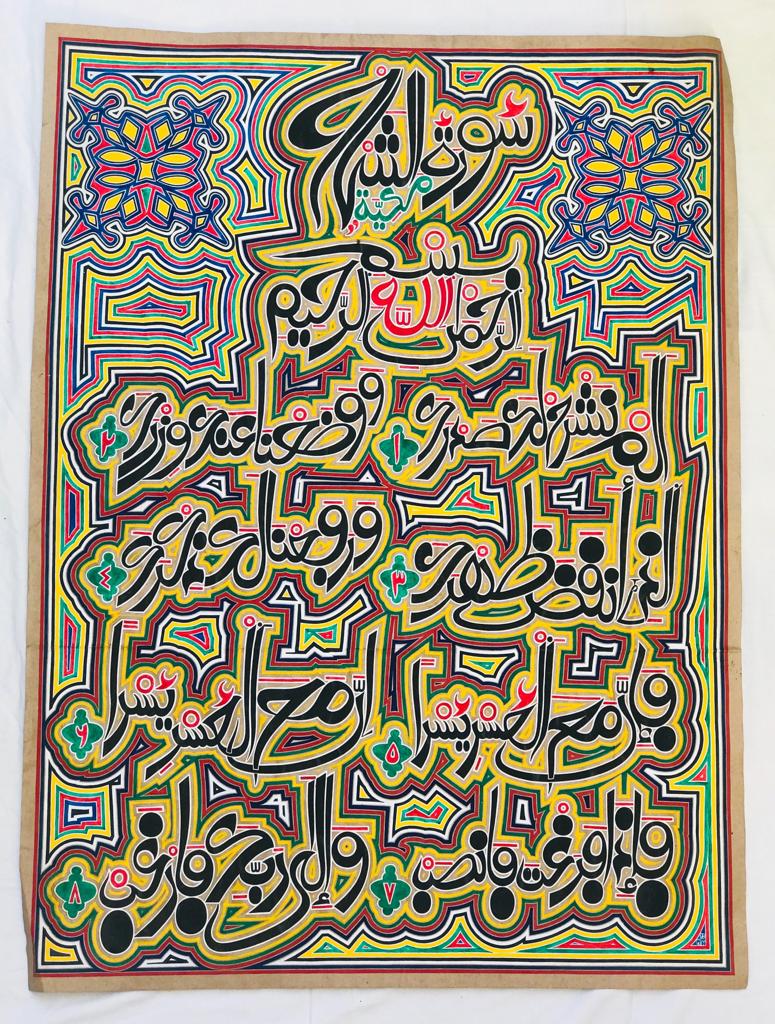 سورة الشرح
مكية
بسم الله الرحمن الرحيم
ألم نشرح لك صدرك ١ ووضعنا عنك وزرك ٢
الذي أنقض ظهرك ٣ ورفعنا لك ذكرك ٤
فإن مع العسر يسرا ٥ إن مع العسر يسرا ٦
فإذا فرغت فانصب ٧ وإلى ربك فارغب ٨